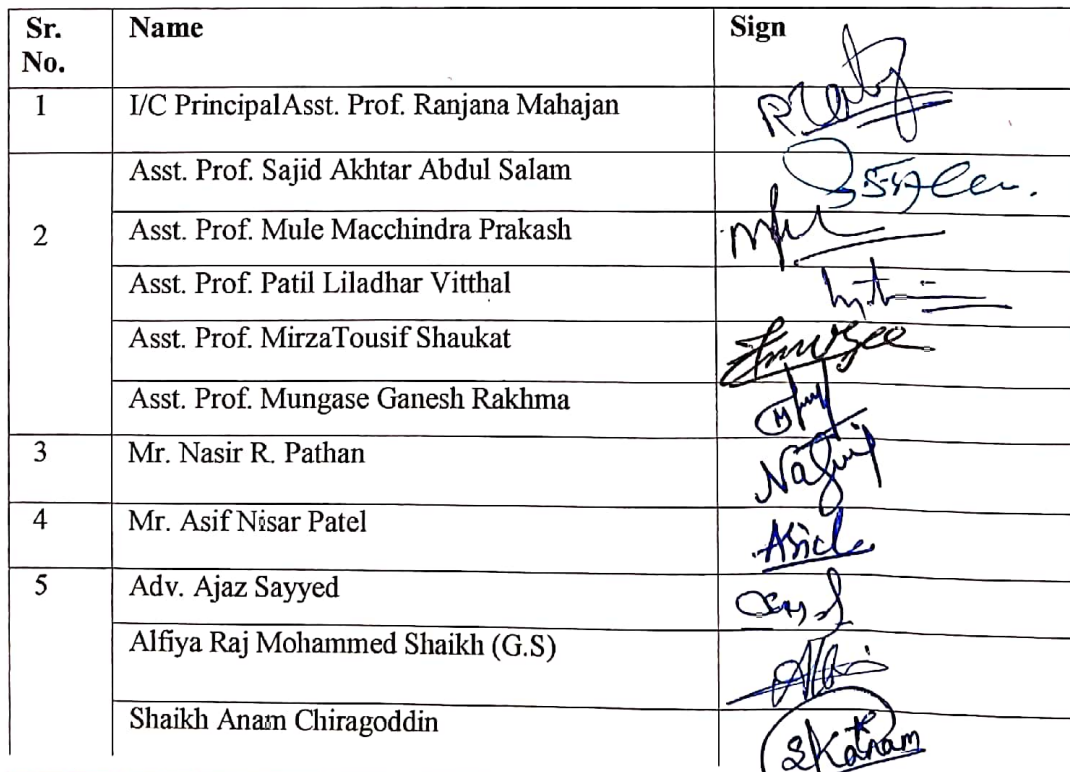 Sr. No. Name Sign
1 I/C PrincipalAsst. Prof. Ranjana Mahajan
Asst. Prof. Sajid Akhtar Abdul Salam
2 Asst. Prof. Mule Macchindra Prakash
Asst. Prof. Patil Liladhar Vitthal
Asst. Prof. MirzaTousif Shaukat
Asst. Prof. Mungase Ganesh Rakhma
3 Mr. Nasir R. Pathan
4 Mr. Asif Nisar Patel
5 Adv. Ajaz Sayyed
Alfiya Raj Mohammed Shaikh (G.S)
Shaikh Anam Chiragoddin SKanam